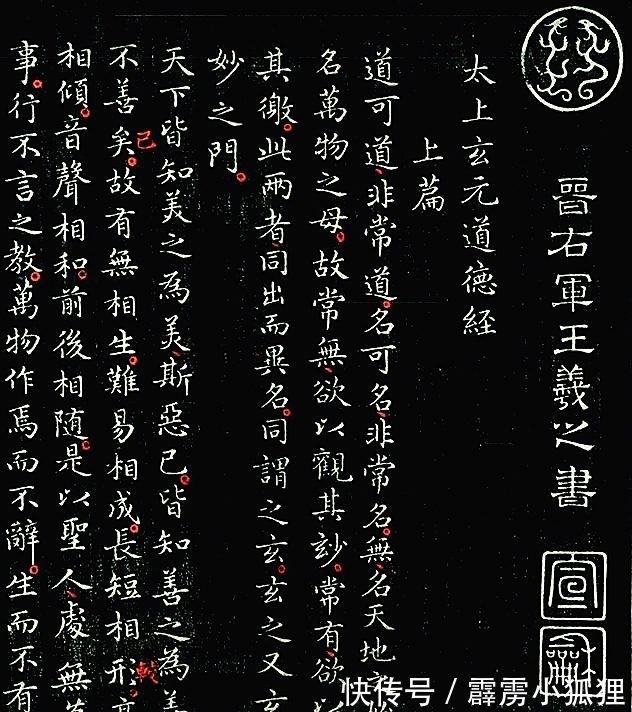 晉右軍王羲之書
宣
太上玄元道德経
上篇
道可道、非常道。名可名、非常名。無、名天地
名萬物之母。故常無、欲以觀其玅。常有、欲以
其徼。此兩者、同出而異名。同謂之玄。玄之又玄
妙之門。
天下皆知美之為美、斯惡已。皆知善之為善
不善矣。故有無相生。難易相成。長短相形。
已
較
相傾。音聲相和。前後相随。是以聖人、處無
事。行不言之教。萬物作焉而不辭。生而不有
快传号 / 霹雳小狐狸